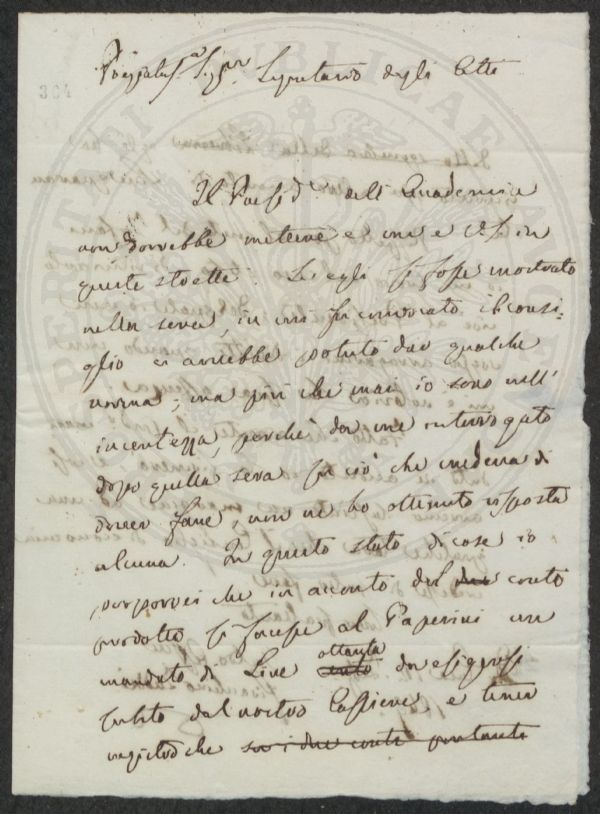 364
Sig.r Segretario degli Atti
Il Presid.e dell' Accademia
non dovrebbe mettere e me e in
queste strette. Se egli si fosse mostrato
nella sera, in cui fu convocato il consi-
glio ci avrebbe potuto dar qualche
norma; ma più che mai io sono nell'
incertezza, perchè da me interrogato
dopo quella sera su ciò che credeva di
dover fare, non ne ho ottenuto risposta
alcuna. In questo stato di cose io
proporrei che in acconto del due conto
prodotto si facesse al Paperini un
mandato di Lire cento ottanta da esiggersi
subito dal nostro Cassiere, e tener
che sui due conti pertanto